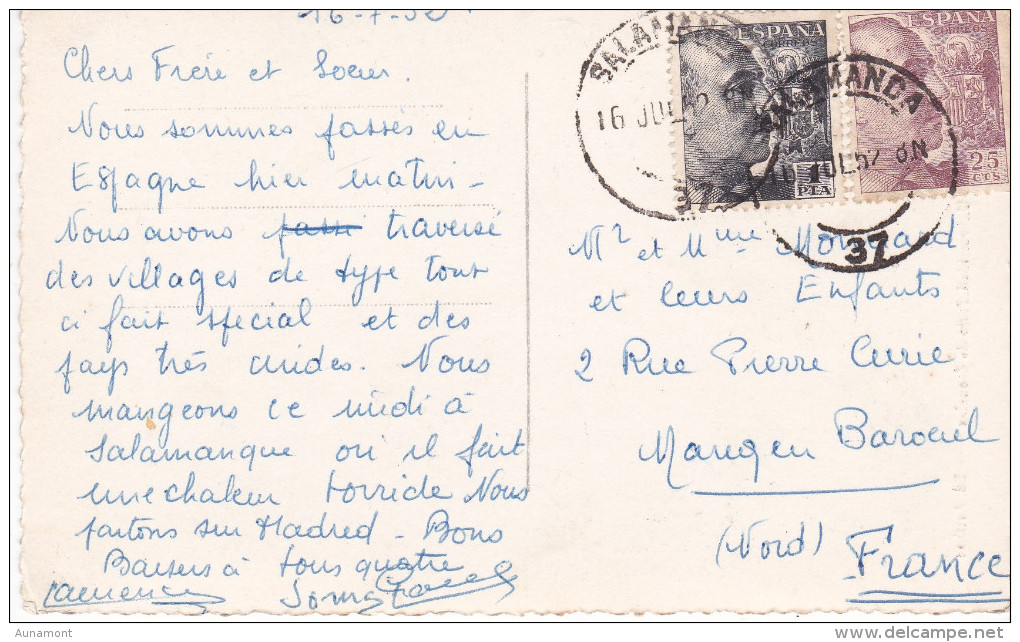 16-7-52
Chers Frère et Soeur.
Nous sommes passés en
Espagne hier matin-
Nous avons passé traversé
des villages de type tout
ci fait spécial et des
pays très arides. Nous
mangeons ce midi à
Salamanque où il fait
une chaleur torride Nous
partons sur Madred - Bons
Baisers à tous quatre
ESPAÑA
CORREOS
1 PTA
ESPAÑA
CORREOS
25
CTS
SALAMAN
16 JUL 52 8N
37
SALAMANCA
16 JUL 52 8N
37
Mr et Mme
et leurs Enfants
2 Rue Pierre Curie
Marcq en Baroeul
(Nord)
France
Aunamont
delcampe.net